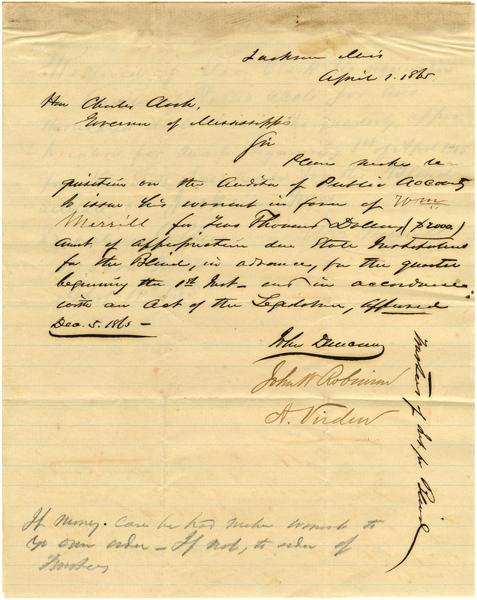 Jackson Miss
April 1. 1865
Hon Charles Clark,
Governor of Mississippi
Sir
Please make re-
quisition on the Auditor of Public Accounts
to issue his warrant in favor of Wm
Merrill for Two Thousand Dollars, ($2000)
amt of appropriation due State Institution
for the Blind, in advance, for the quarter
beginning the 1st Inst - and in accordance
with an act of the Legislature, approved
Dec. 5. 1865 -
John Duncan
John W Robinson
A. Virden
Trustees of Inst for Blind
If money can be had make warrant to
yr own order - If not, to order of
Trustees